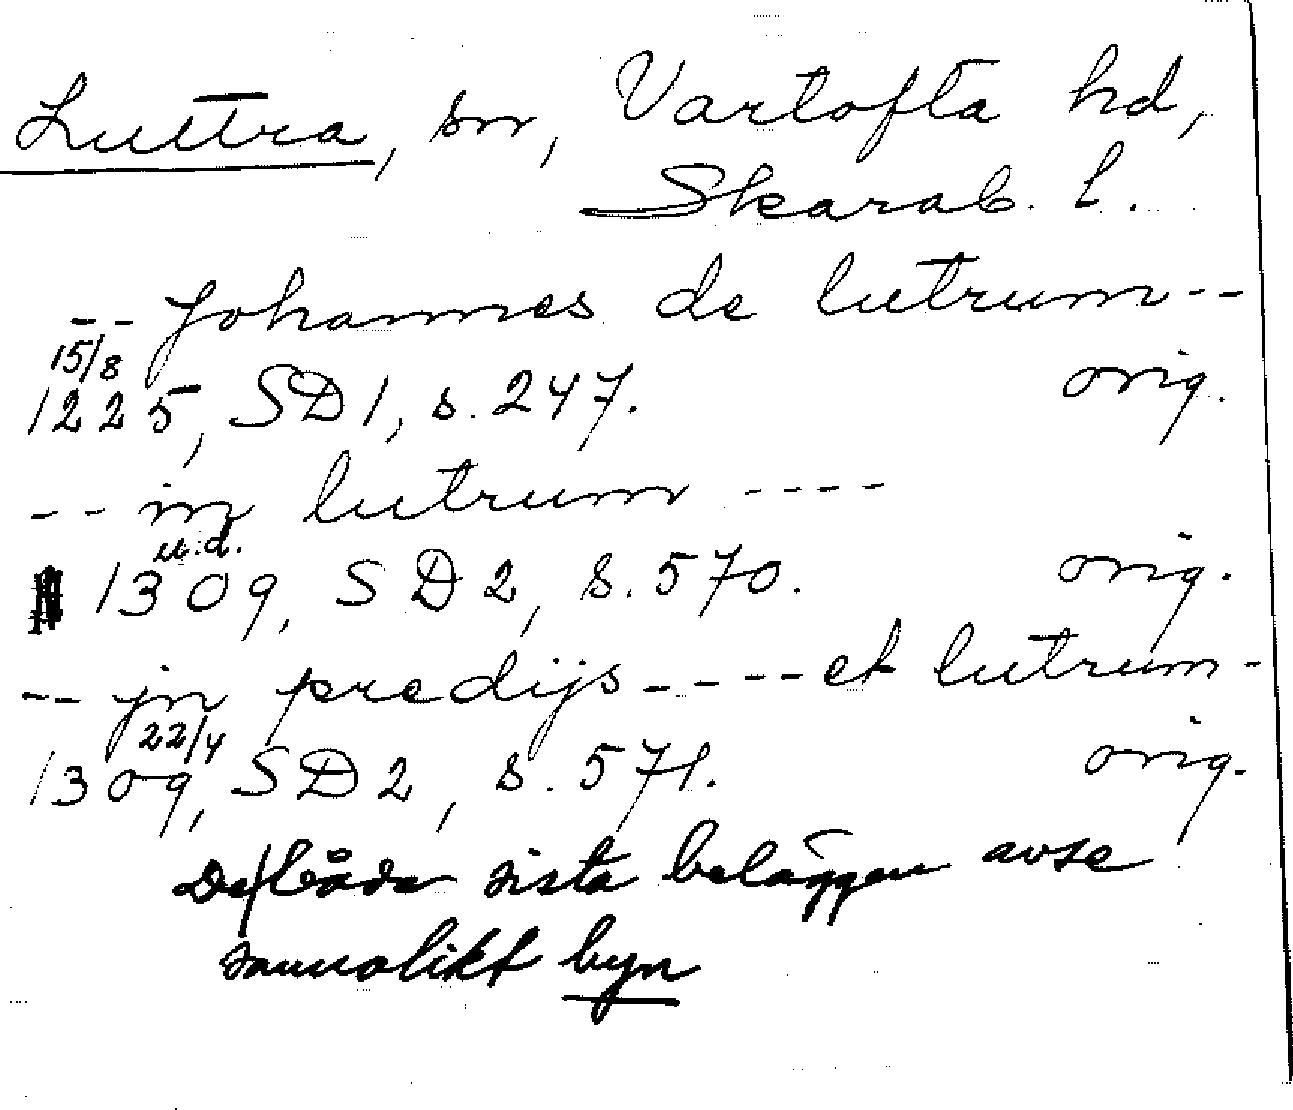 Luttra, sn, Vartofta hd,
Skarab. l.
-- Johannes de lutrum --
15/8
1225, SD1, s. 247. orig.
-- in lutrum ----
u.d.
1309, SD2, s. 570. orig.
-- jn predijs ---- et lutrum -
22/4
1309, SD2, s. 571. orig.
De båda sista beläggen avse
sannolikt byn